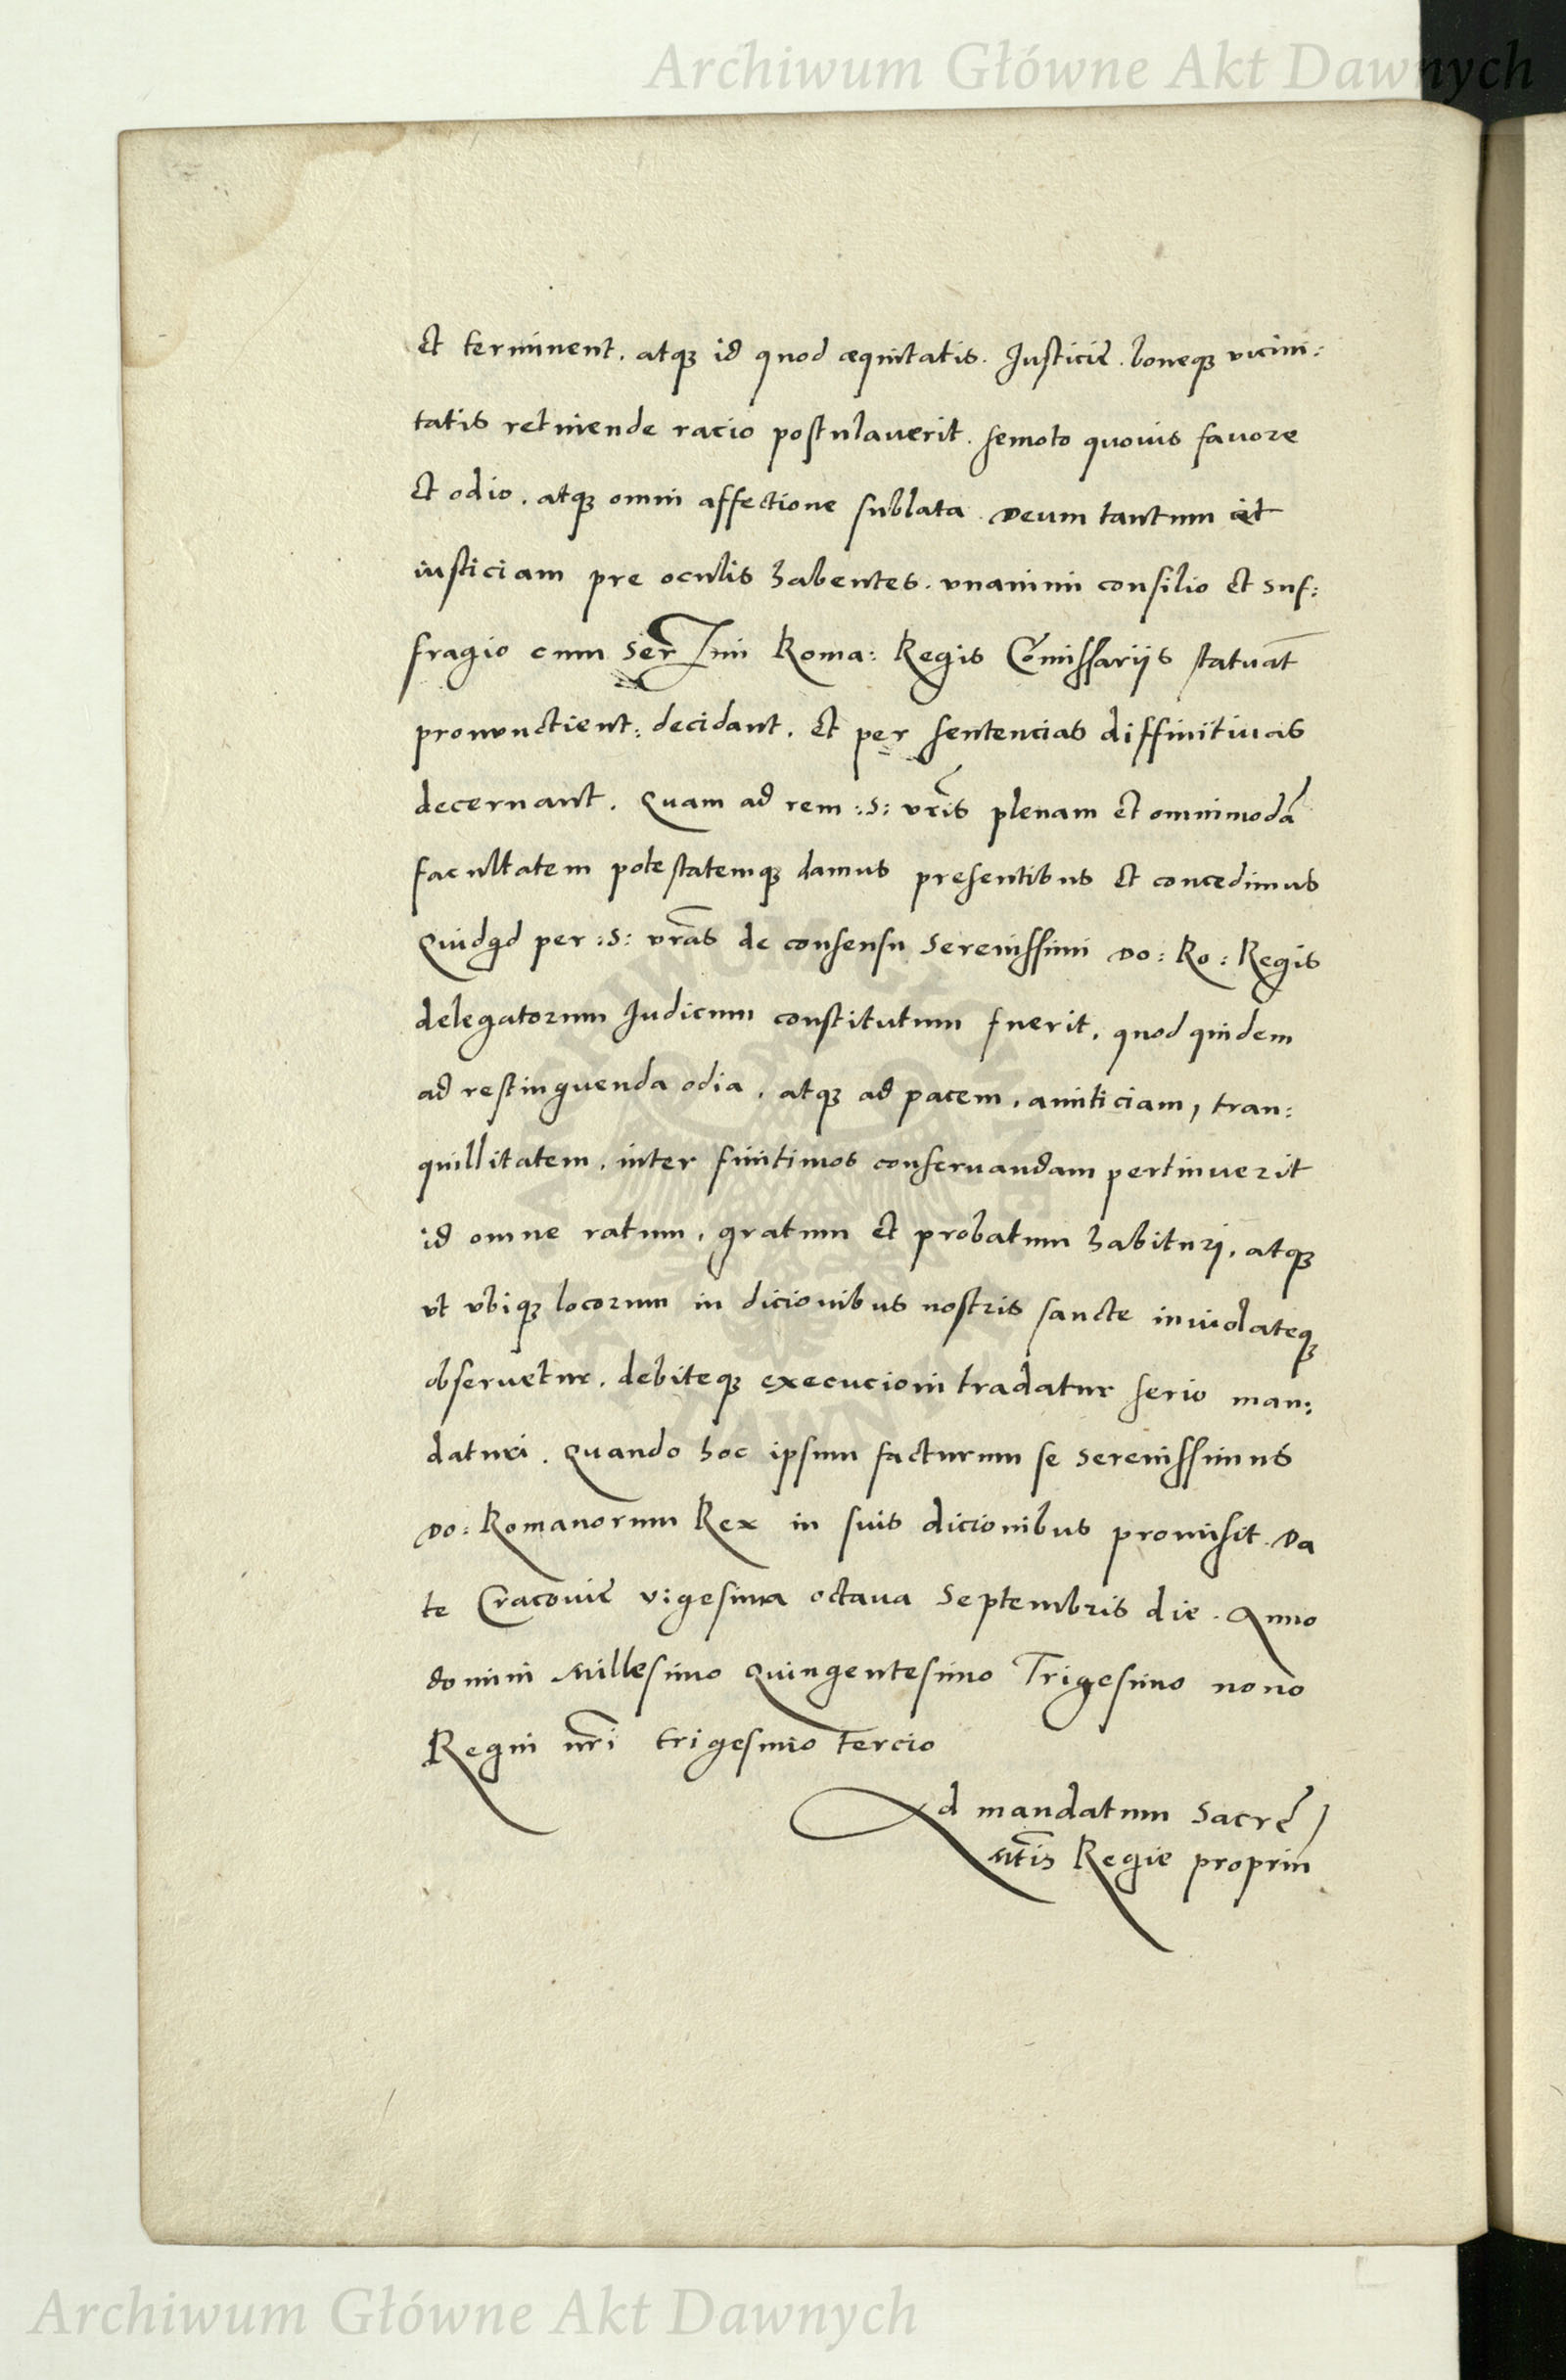 Archiwum Główne Akt Dawnych
Et terminent. atqꝫ id quod æquitatis. Justicię. boneqꝫ vicini:
tatis retinende racio postulauerit. semoto quouis fauore
Et odio. atqꝫ omni affectione sublata. Deum tantum et
iusticiam pre oculis habentes. vnanimi consilio Et suf:
fragio cum Ser Imi Roma: Regis Cōmissariis statuāt
pronunctient: decidant. Et per sentencias diffinitiuas
decernant. Quam ad rem :S: vr̃is plenam Et omnimodā
facultatem potestatemqꝫ damus presentibus Et concedimus
Quidqd per :S: vr̃as de consensu Serenissimi Do: Ro: Regis
delegatorum Judicum constitutum fuerit, quod quidem
ad restinguenda odia, atqꝫ ad pacem, amiticiam, tran:
quillitatem, inter finitimos conseruandam pertinuerit
id omne ratum, gratum Et probatum habituri, atqꝫ
vt vbiqꝫ locorum in dicionibus nostris sancte inuiolateqꝫ
obseruetur, debiteqꝫ execucioni tradatur serio man:
daturi. Quando hoc ipsum facturum se Serenissimus
Do: Romanorum Rex in suis dicionibus promisit. Da
te Cracovię vigesima octaua Septembris die. Anno
domini Millesimo Quingentesimo Trigesimo nono
Regni nr̃i trigesimo tercio
Ad mandatum Sacrę
Mt̃is Regie propriū
Archiwum Główne Akt Dawnych